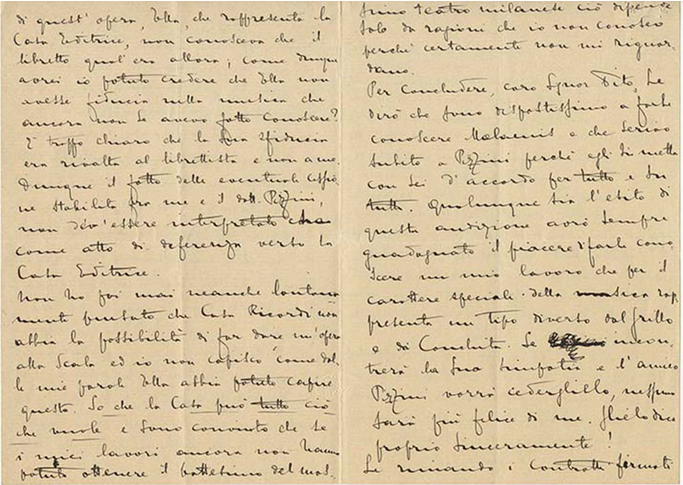 di quest'opera, Ella, che rappresenta la
Casa Editrice, non conosceva che il
libretto qual'era allora; come dunque
avrei io potuto credere che Ella non
avesse fiducia nella musica che
ancora non Le avevo fatto conoscere?
È troppo chiaro che la Sua sfiducia
era rivolta al librettista e non a me.
Dunque il fatto delle eventuali
ne stabilita fra me e il dott. Pizzini,
non dev'essere interpretato che
come atto di deferenza verso la
Casa Editrice.
Non ho poi mai neanche lontana
mente pensato che Casa Ricordi non
abbia la possibilità di far dare un'opera
alla Scala ed io non capisco come dal
le mie parole Ella abbia potuto capire
questo. So che la Casa può tutto ciò
che vuole e sono convinto che se
i miei lavori ancora non hanno
potuto ottenere il battesimo del mas-
simo teatro milanese ciò dipende
solo da ragioni che io non conosco
perché certamente non mi riguar-
dano.
Per concludere, caro Signor Tito, Le
dirò che sono dispostissimo a farle
conoscere e che scrivo
subito a Pizzini perché egli si metta
con Lei d'accordo per tutto e su
tutto. Qualunque sia l'esito di
questa audizione avrò sempre
guadagnato il piacere di farle cono
scere un mio lavoro che per il
carattere speciale della musica rap
presenta un tipo diverso dal Grillo
e da Se incon
trerà la Sua simpatia e l'amico
Pizzini vorrà cederglielo, nessuno
sarà più felice di me. Glielo dico
proprio sinceramente!
Le rimando i contratti firmati